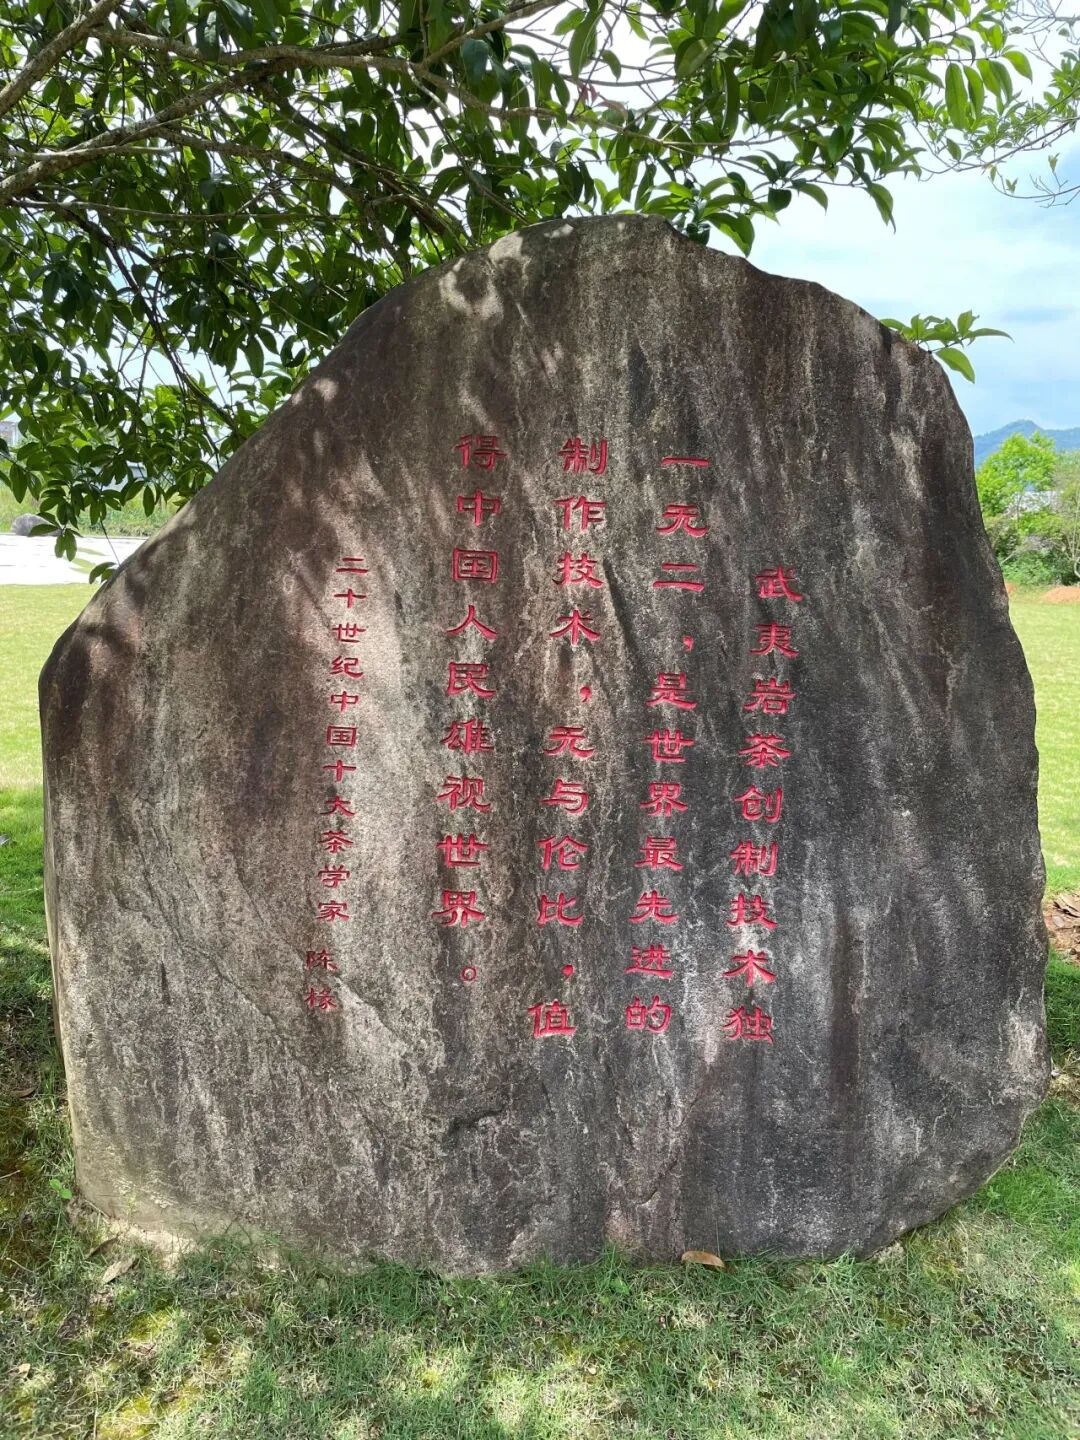 武夷岩茶创制技术独
一无二，是世界最先进的
制作技术，无与伦比，值
得中国人民雄视世界。
二十世纪中国十大茶学家 陈椽